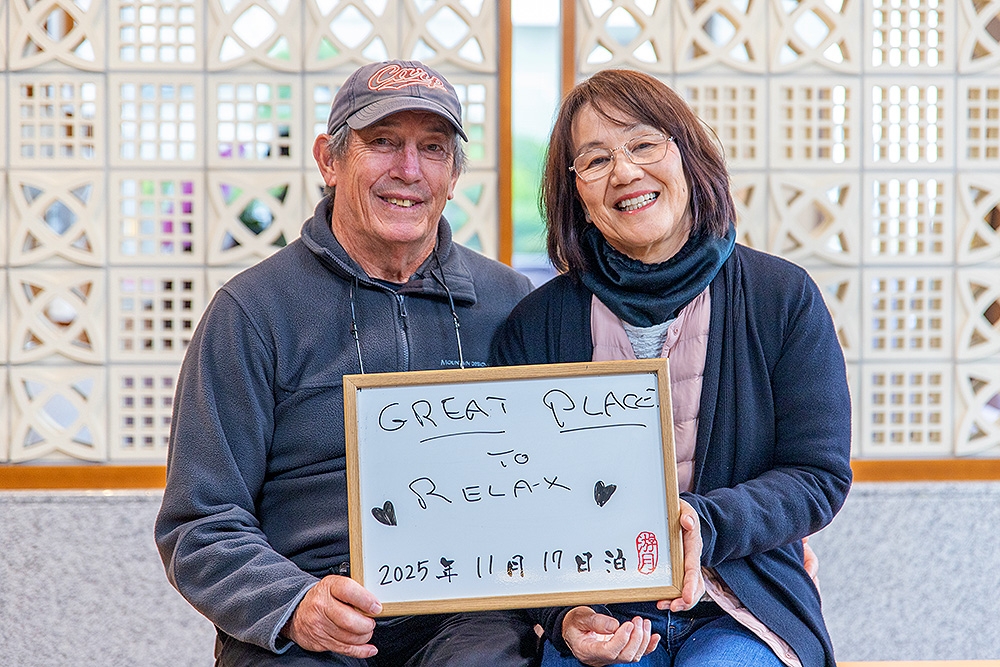 Carp
GREAT PLACE
TO
RELAX
2025年 11月 17日 泊
游月